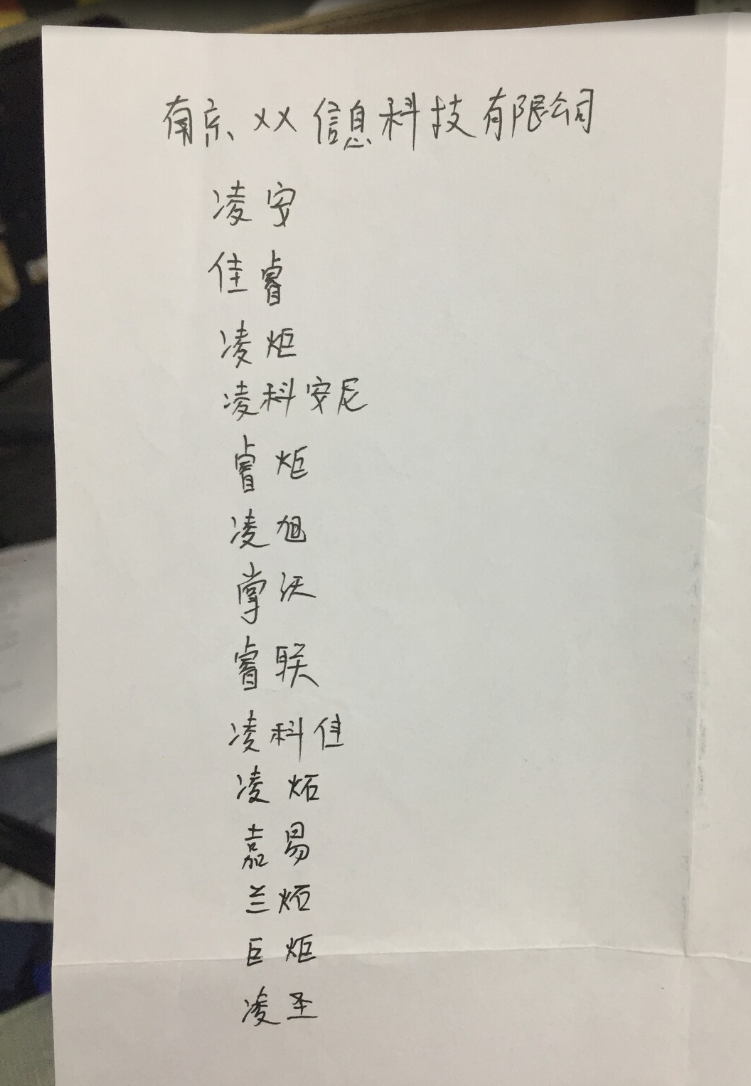 南京XX信息科技有限公司
凌安
佳睿
凌炬
凌科安尼
睿炬
凌旭
掌沃
睿联
凌科佳
凌炻
嘉易
兰炻
巨炬
凌圣